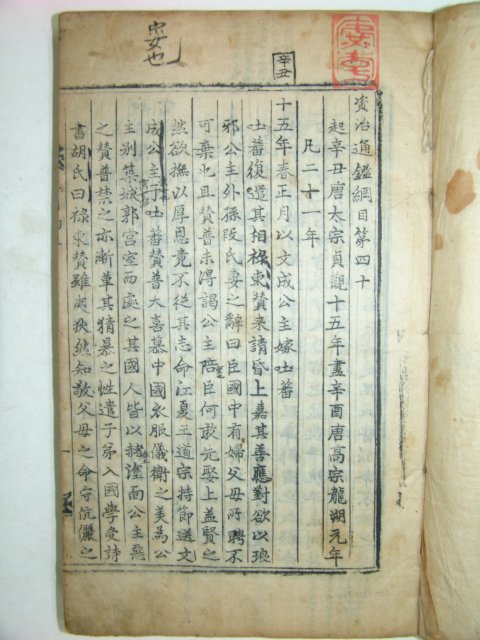 資治通鑑綱目第四十
起辛丑唐太宗貞觀十五年盡辛酉唐高宗龍湖元年
凡二十一年
辛丑
十五年春正月以文成公主嫁吐蕃
吐蕃復遣其相祿東贊來請昏上嘉其善應對欲以琅
邪公主外孫段氏妻之辭曰臣國中有婦父母所聘不
可棄也且贊普未得謁公主陪臣何敢先娶上益賢之
然欲撫以厚恩竟不從其志命江夏王道宗持節送文
成公主于吐蕃贊普大喜慕中國衣服儀衛之美為公
主別築城郭宮室而處之其國人皆以赭塗面公主惡
之贊普禁之亦漸革其猜暴之性遣子弟入國學受詩
書胡氏曰祿東贊雖夷狄然知敬父母之命守伉儷之
女也